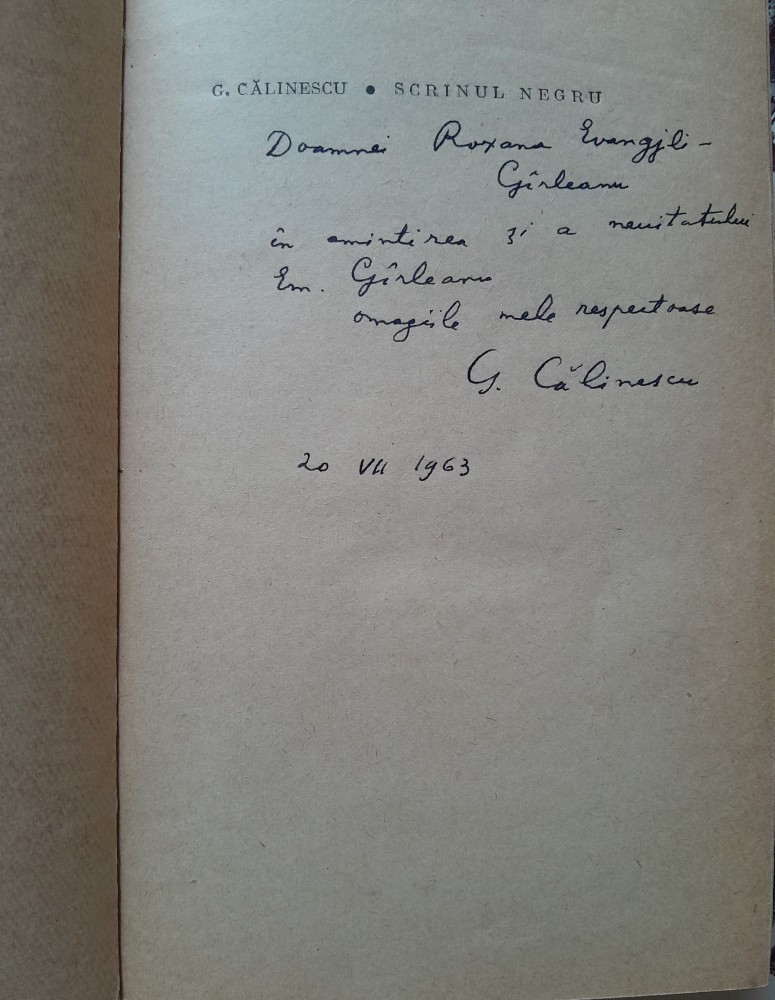 G. CĂLINESCU ● SCRINUL NEGRU
Doamnei Roxana Evangjli-
Gîrleanu
în amintirea și a neuitatului
Em. Gîrleanu
omagiile mele respectoase
G. Călinescu
20 VII 1963